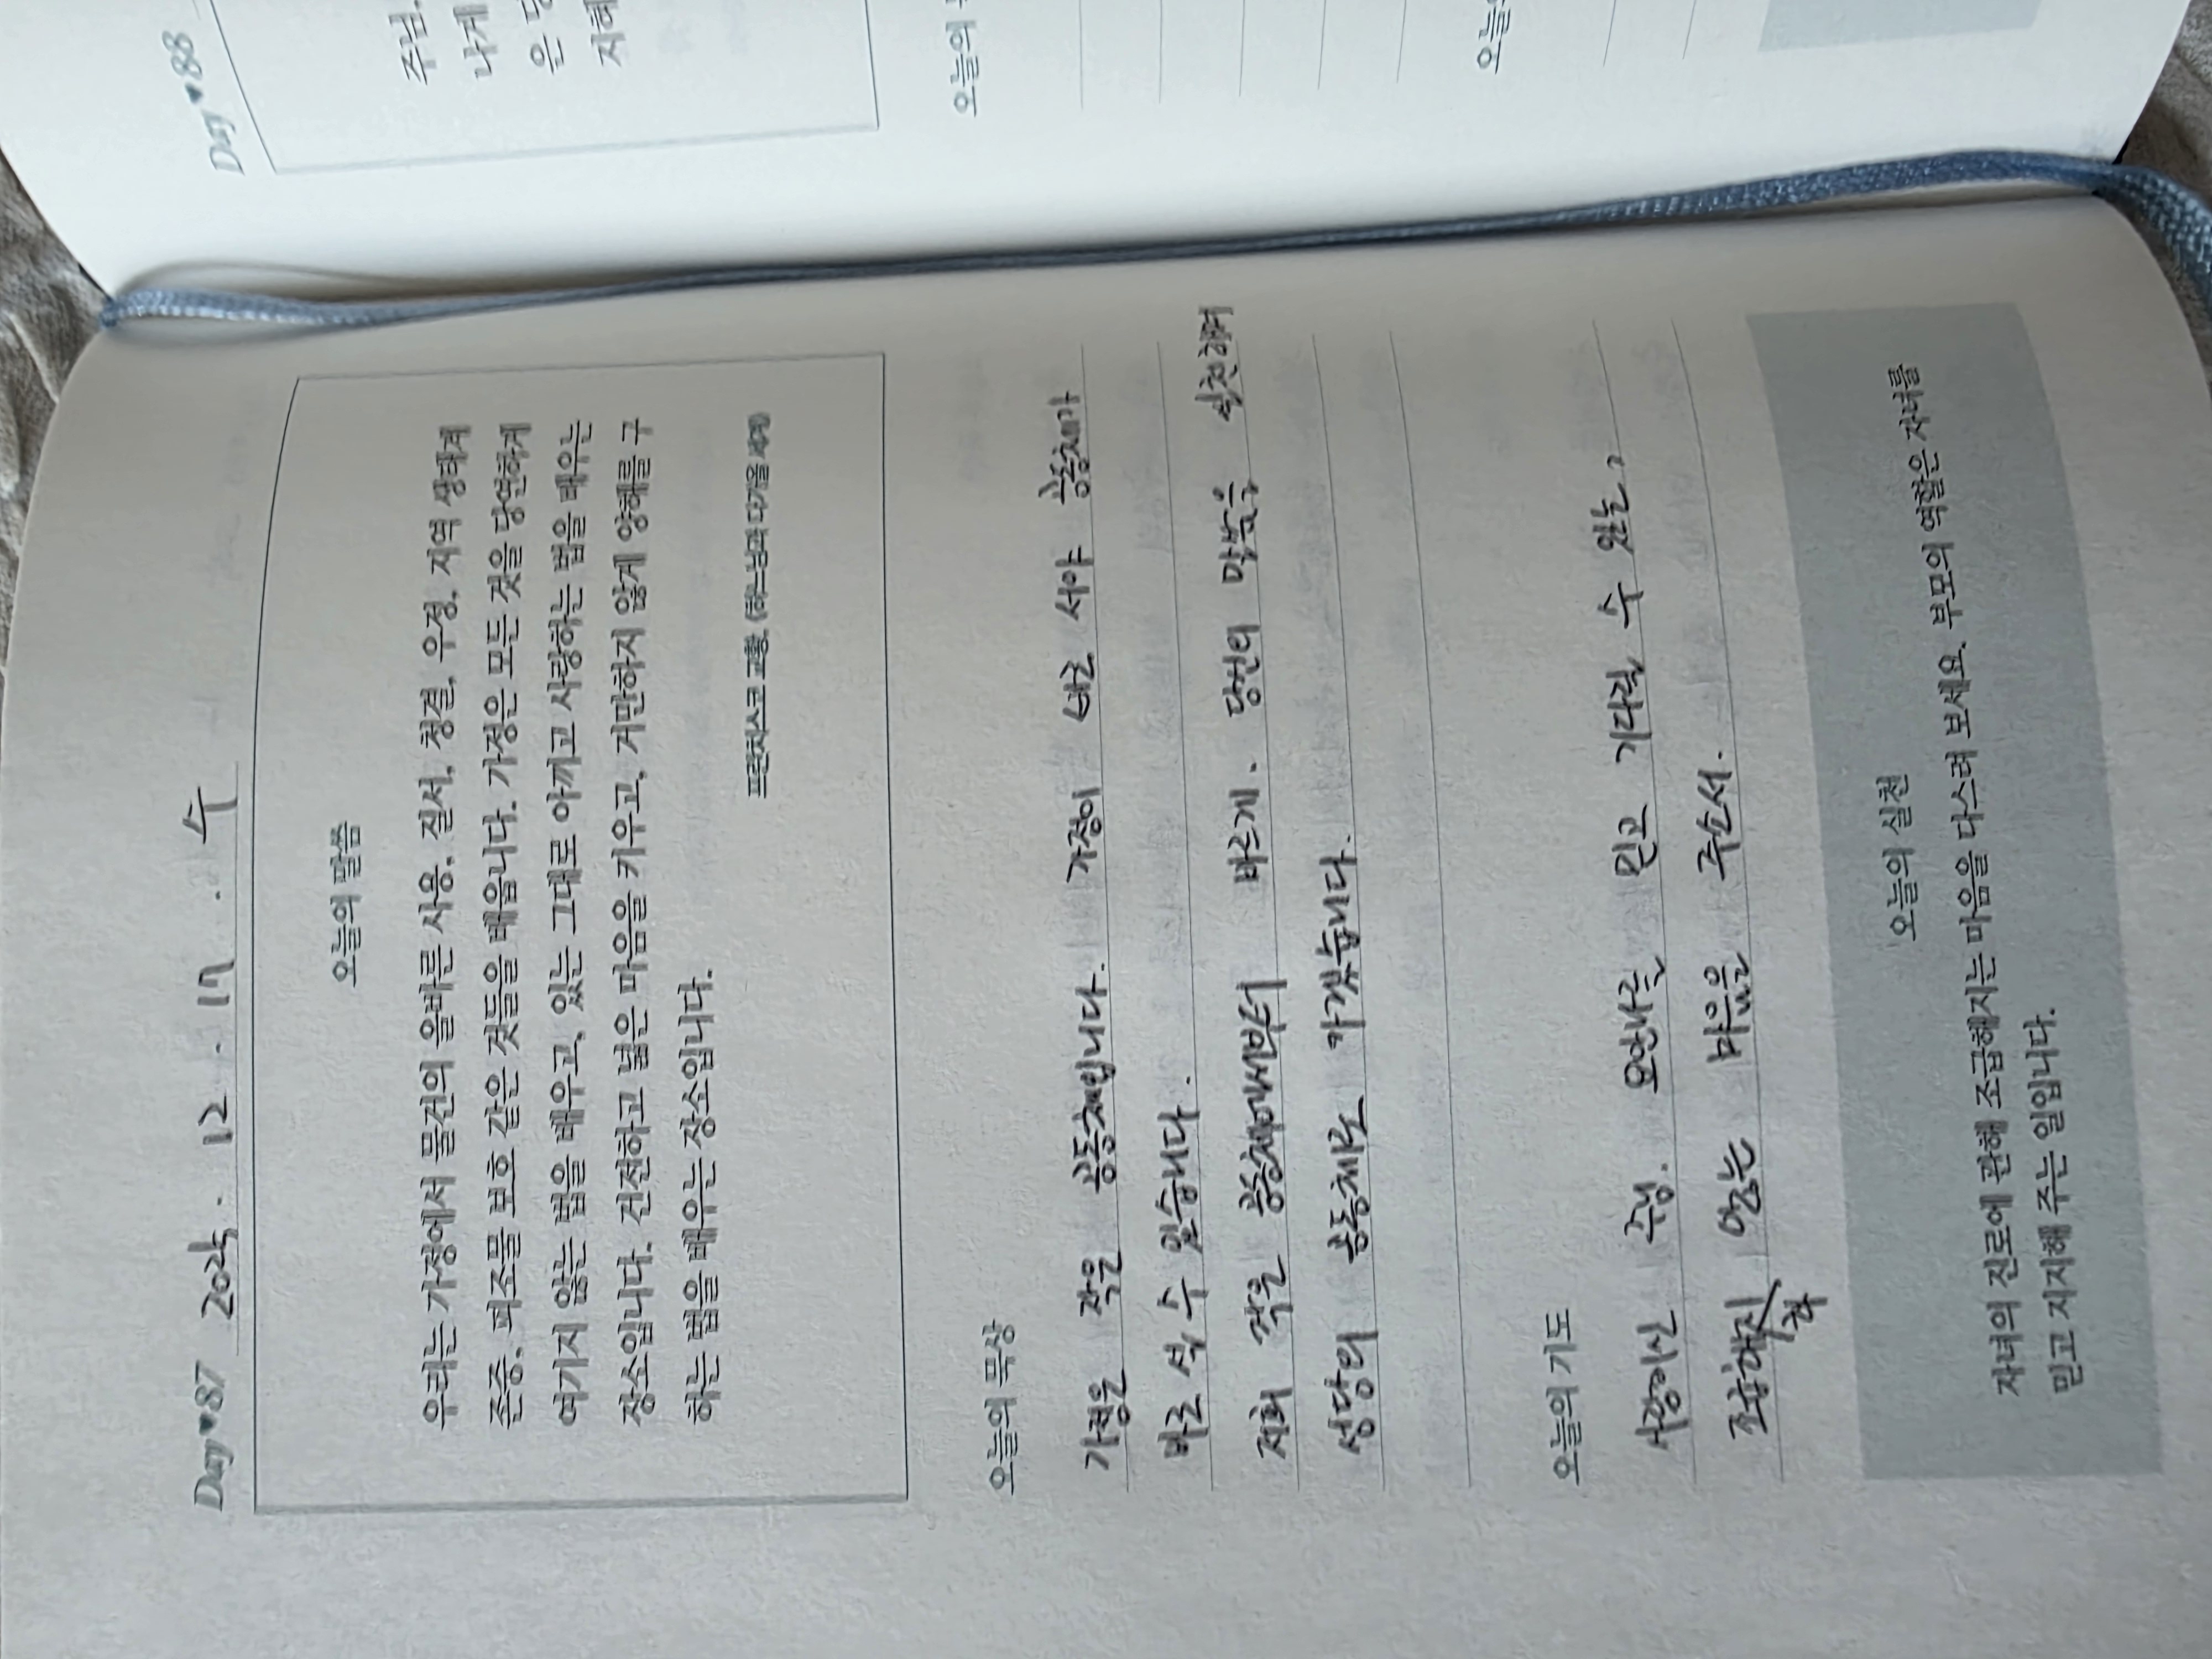 Day♥87 2025. 12. 17. 수
오늘의 말씀
우리는 가정에서 물건의 올바른 사용, 질서, 청결, 우정, 지역 생태계
존중, 피조물 보호 같은 것들을 배웁니다. 가정은 모든 것을 당연하게
여기지 않는 법을 배우고, 있는 그대로 아끼고 사랑하는 법을 배우는
장소입니다. 건전하고 넓은 마음을 키우고, 거만하지 않게 양해를 구
하는 법을 배우는 장소입니다.
프란치스코 교황, 《하느님과 다가올 세계》
오늘의 묵상
가정은 작은 공동체입니다. 가정이 바로 서야 공동체가
바로 설 수 있습니다.
저희 작은 공동체에서부터 바르게. 당신의 말씀을 실천하며
성당의 공동체로 가겠습니다.
오늘의 기도
사랑이신 주님. 요한나를 믿고 기다릴 수 있는,
조급해지 않는 마음을 주소서.
하
오늘의 실천
자녀의 진로에 관해 조급해지는 마음을 다스려 보세요. 부모의 역할은 자녀를
믿고 지지해 주는 일입니다.
Day♥88
주님,
나게
은
지혜
오늘의
오늘의